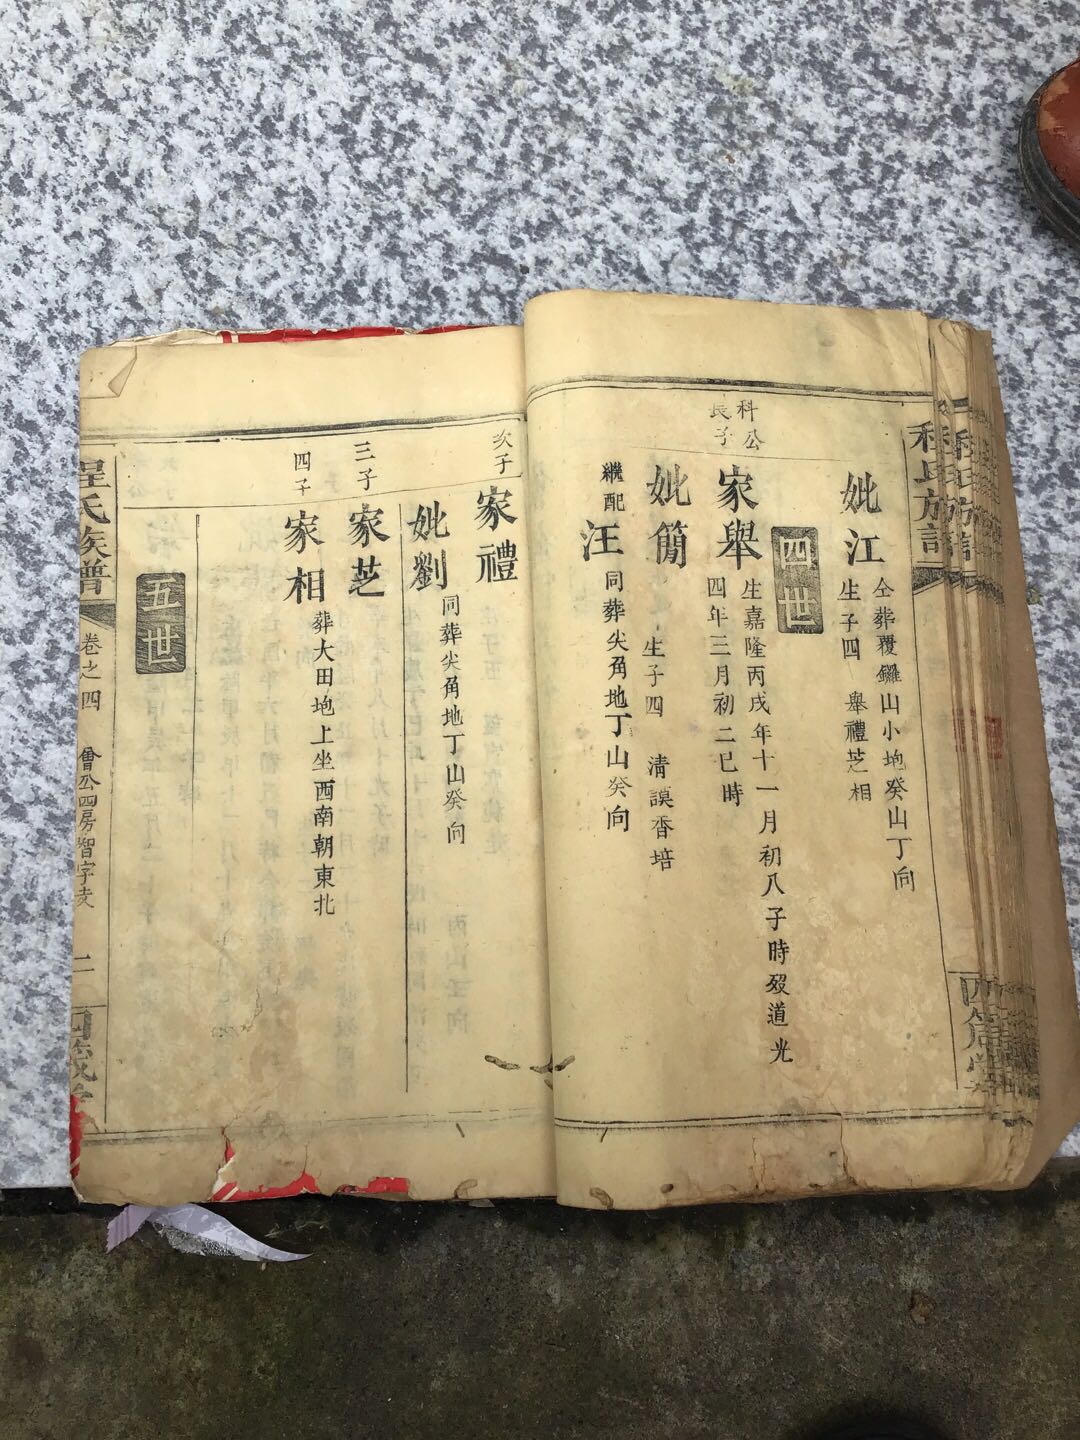 妣江
仝葬覆鑼山小地癸山丁向
生子四 舉禮芝相
四世
科公
長子
家舉
生嘉隆丙戌年十一月初八子時歿道光
四年三月初二巳時
妣簡
生子四 清謨香培
繼配
汪
同葬尖角地丁山癸向
次子
家禮
妣劉
同葬尖角地丁山癸向
三子
家芝
四子
家相
葬大田地上坐西南朝東北
五世
程氏族譜
卷之四
會公四房智字支
二